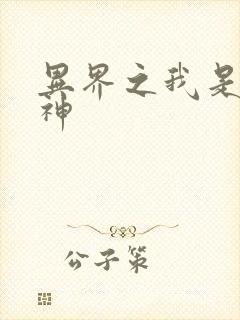 异界之我是
神
公子策